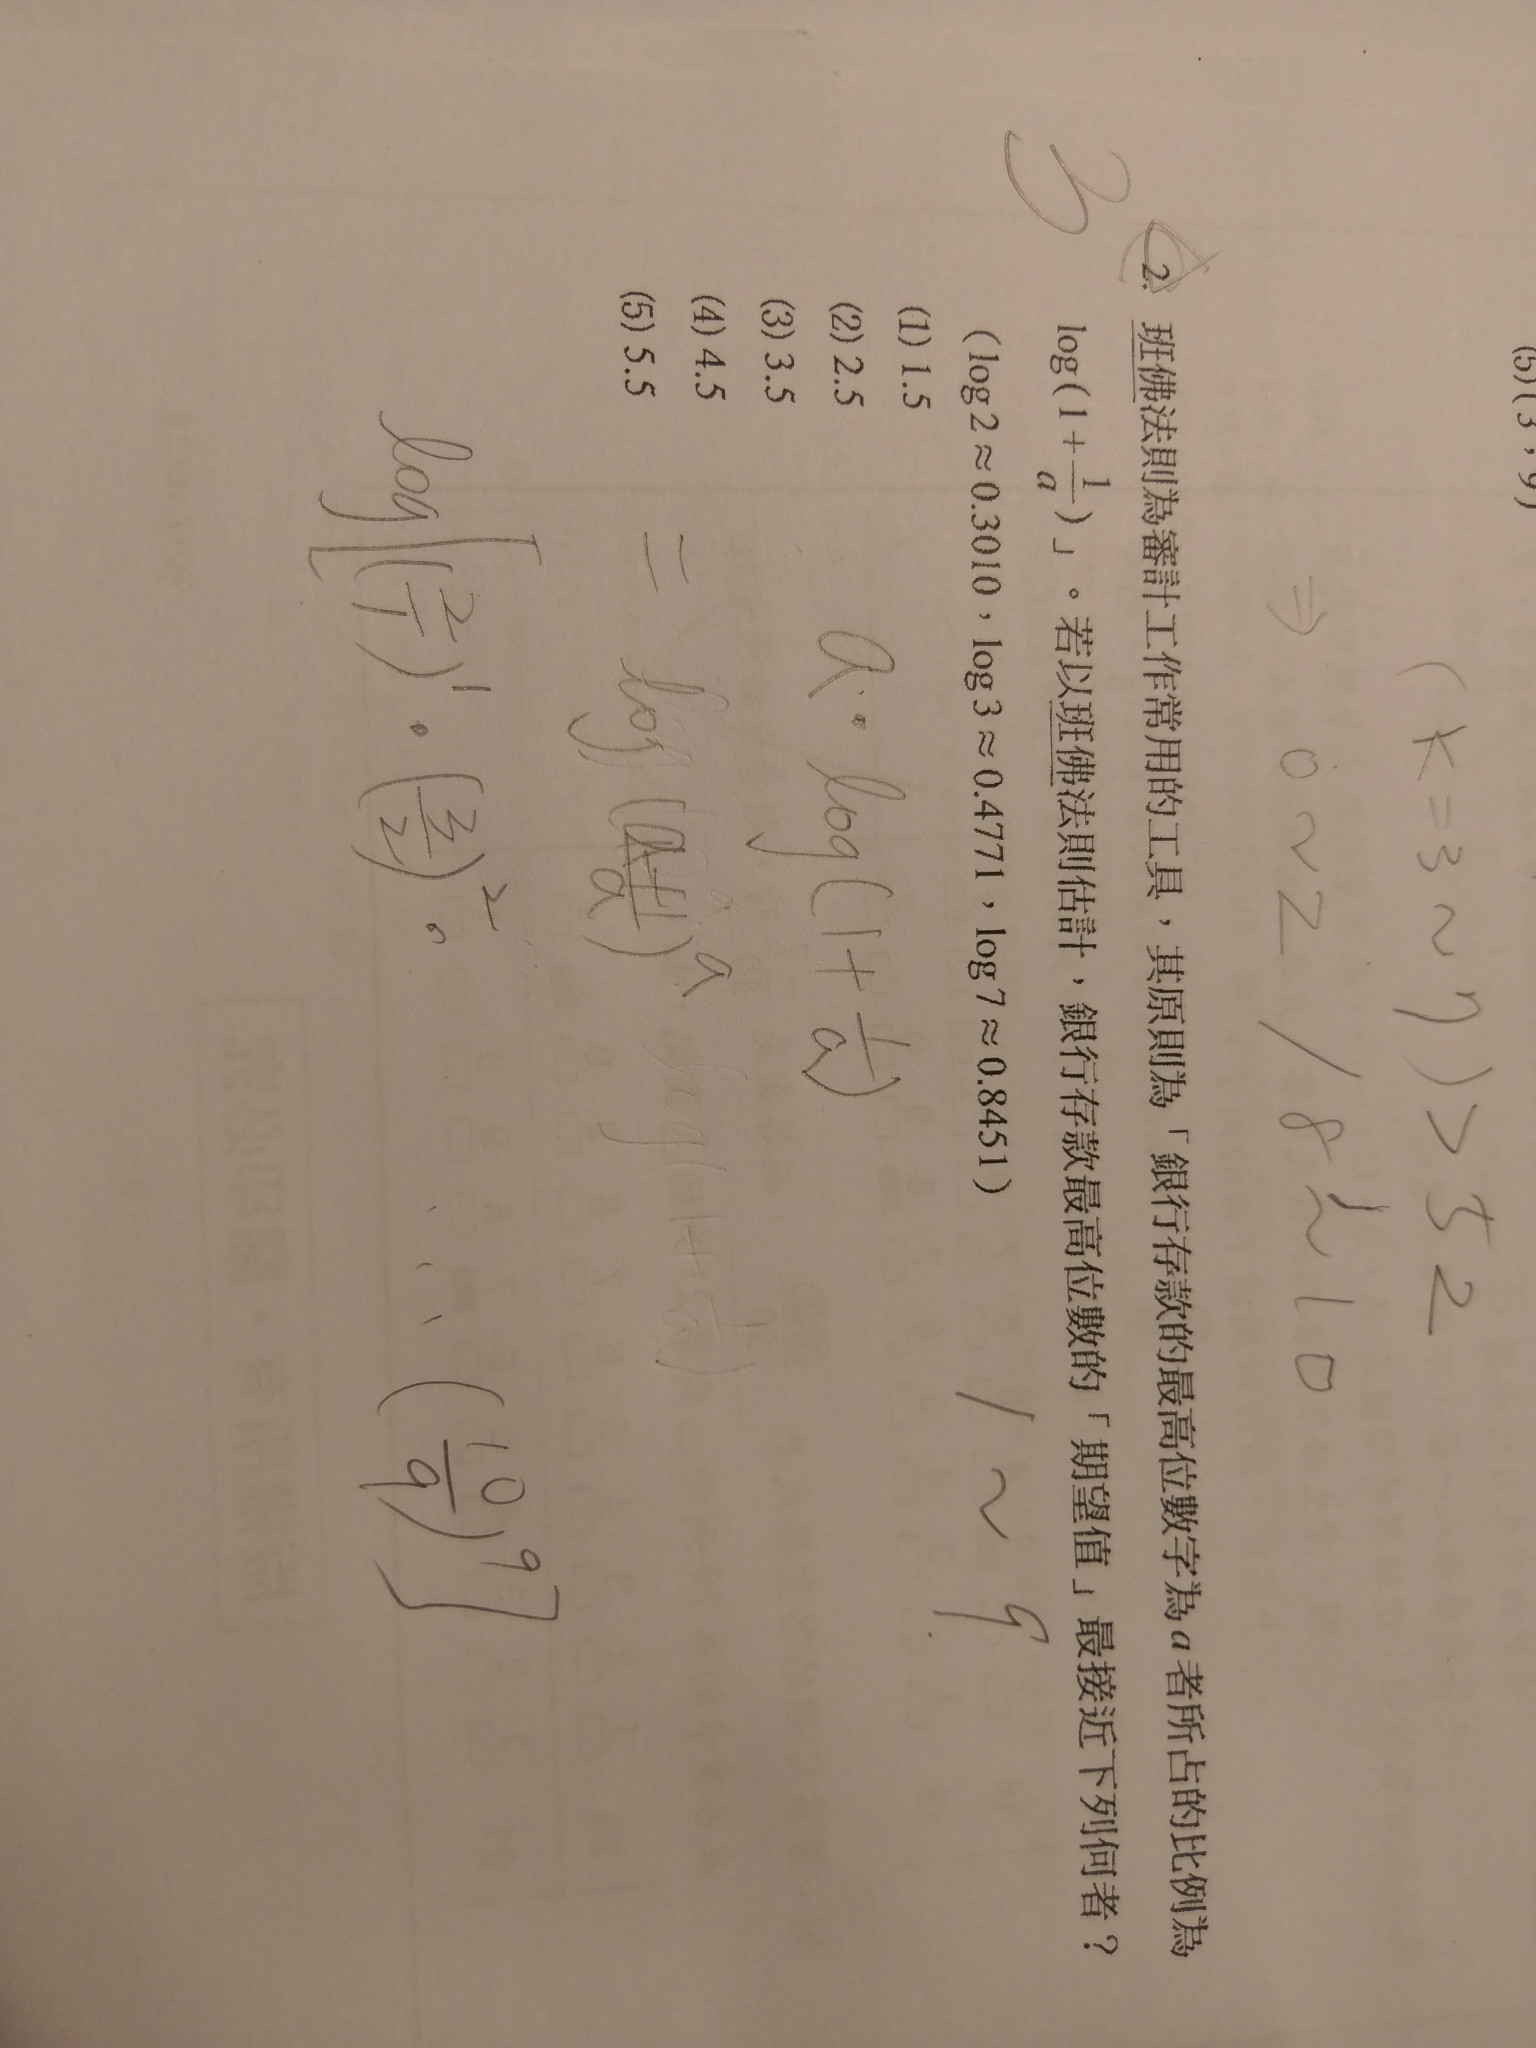 (5)(3,9)
(k=3~7)>52
⇒ 0~2/8~10
3
2. 班佛法則為審計工作常用的工具，其原則為「銀行存款的最高位數字為a者所占的比例為
log(1+1/a)」。若以班佛法則估計，銀行存款最高位數的「期望值」最接近下列何者？
(log2≈0.3010，log3≈0.4771，log7≈0.8451)
1~9
(1) 1.5
(2) 2.5
(3) 3.5
(4) 4.5
(5) 5.5
a·log(1+1/a)
=log((a+1)/a)^a
log[(2/1)^1·(3/2)^2·……(10/9)^9]